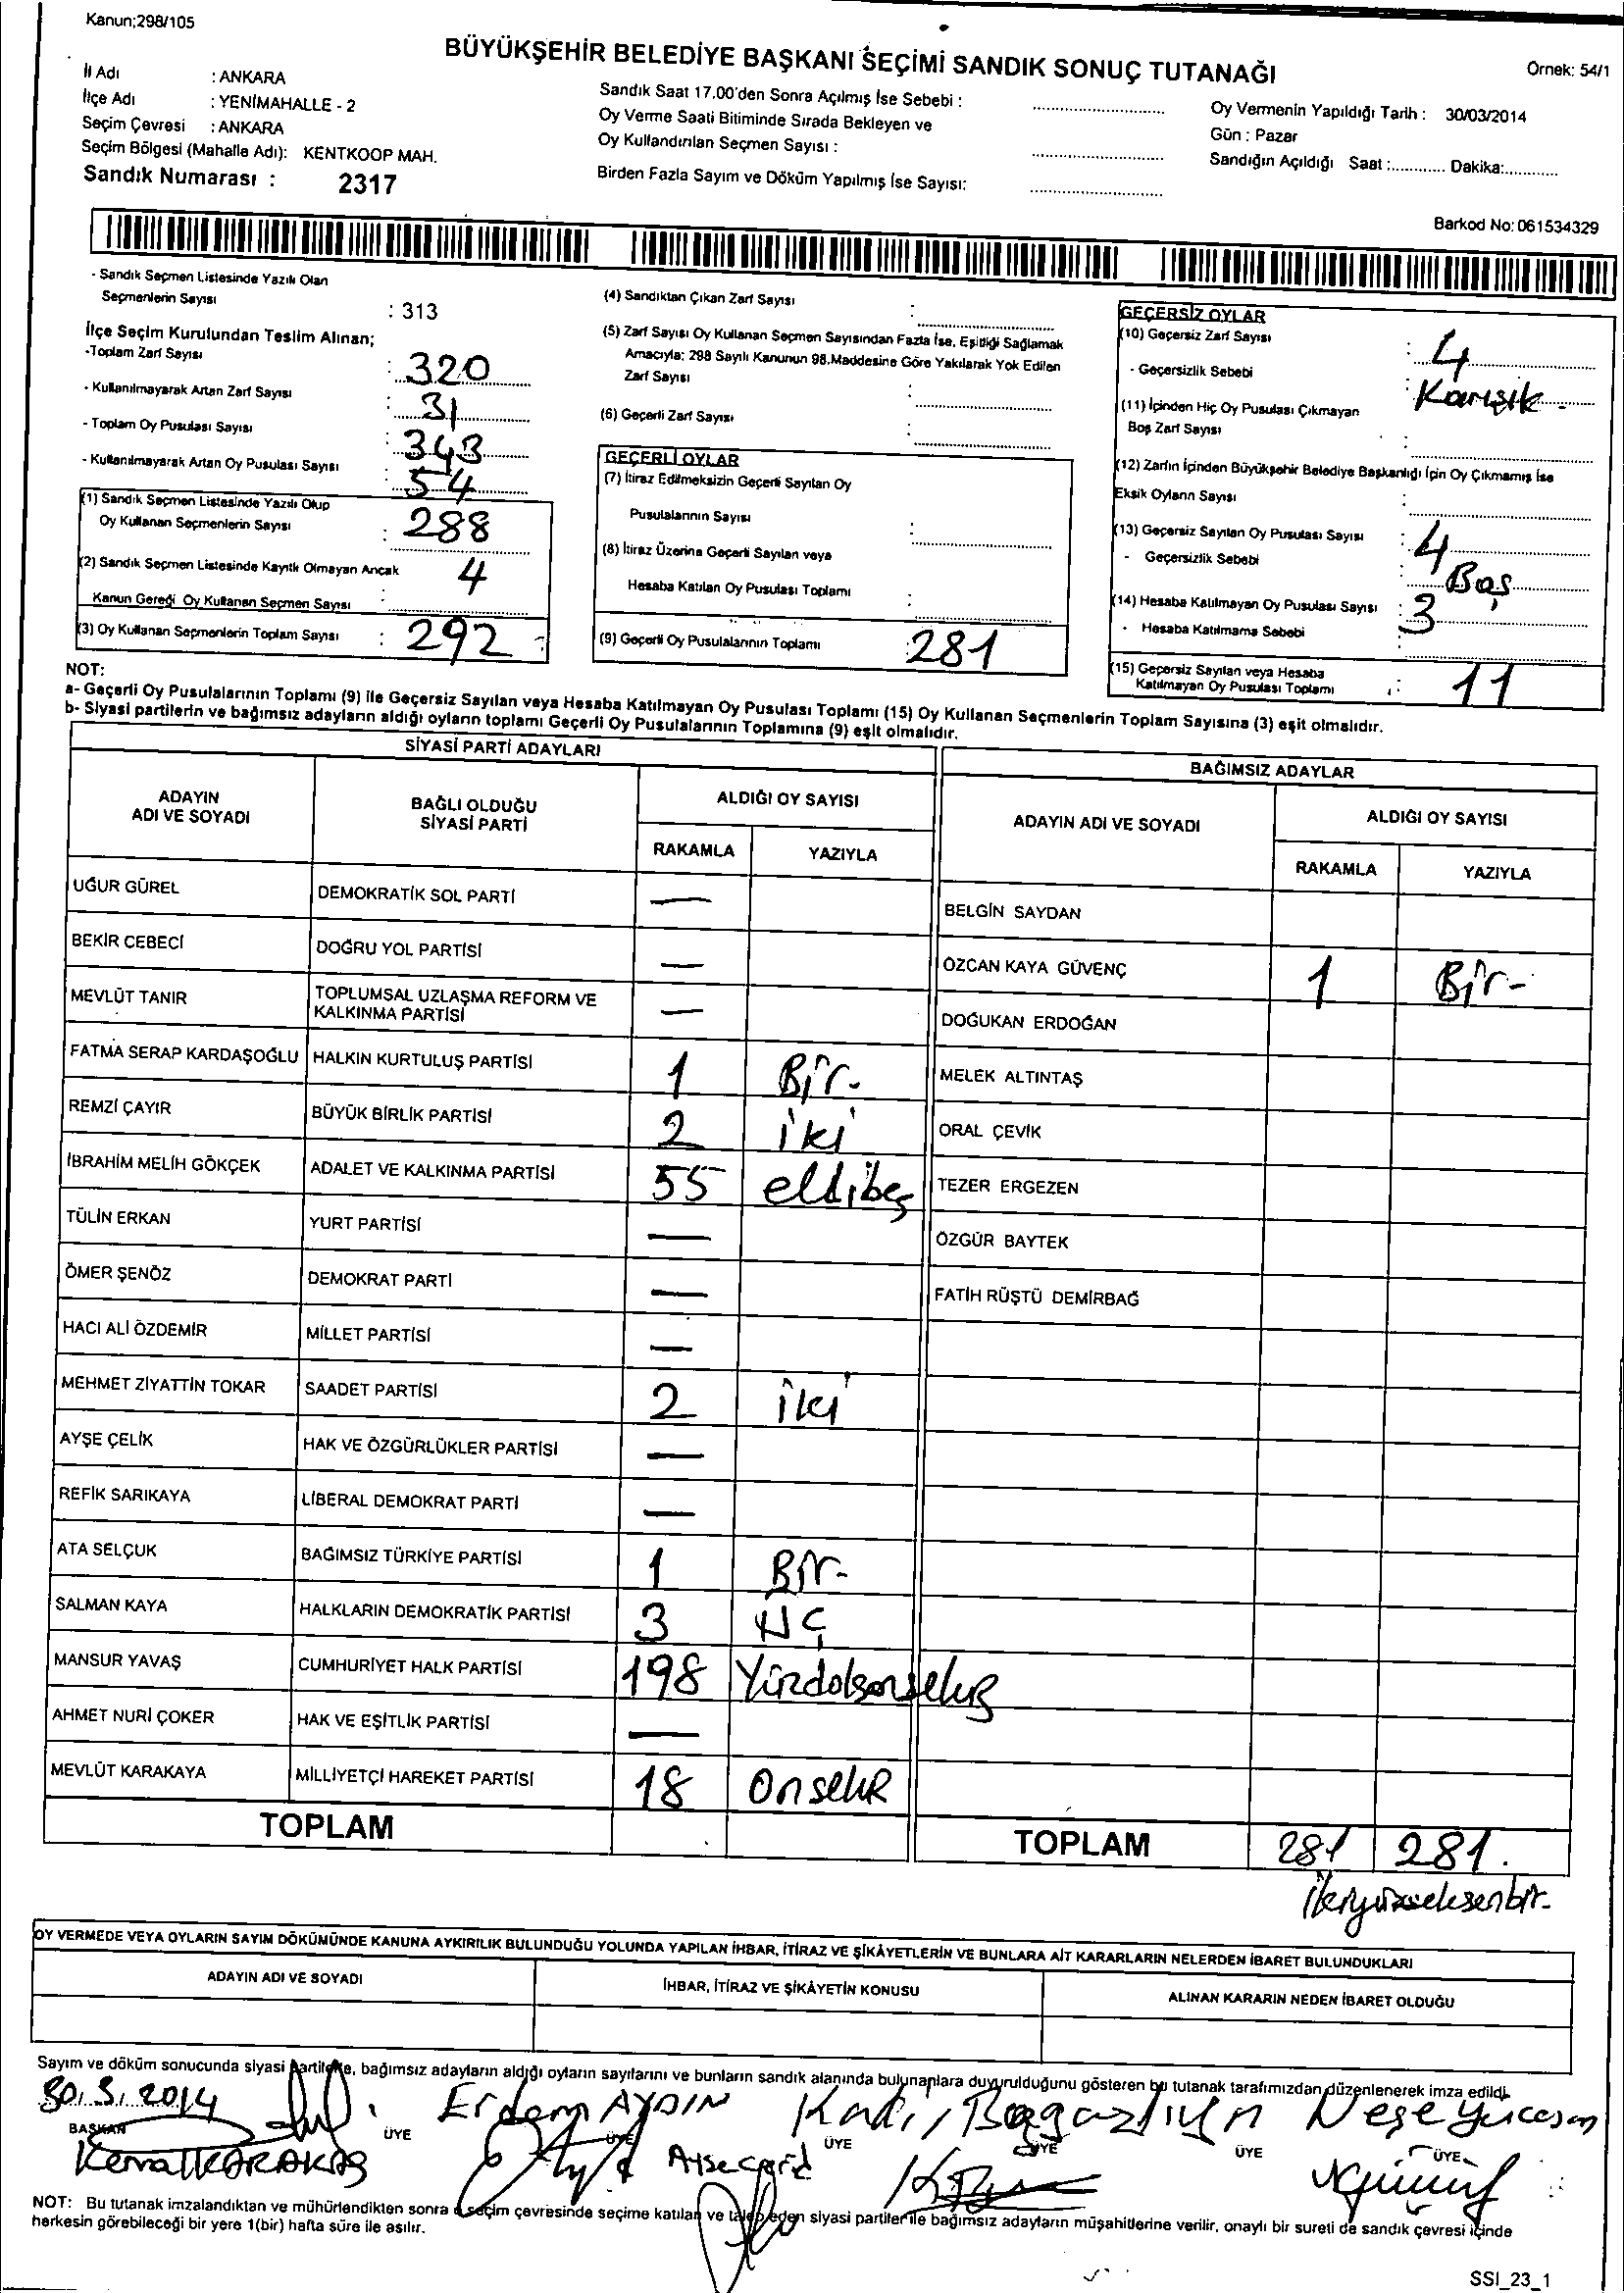 Kanun;298/105
BÜYÜKŞEHİR BELEDİYE BAŞKANI SEÇİMİ SANDIK SONUÇ TUTANAĞI
Örnek: 54/1
İl Adı : ANKARA
İlçe Adı : YENİMAHALLE - 2
Seçim Çevresi : ANKARA
Seçim Bölgesi (Mahalle Adı): KENTKOOP MAH.
Sandık Numarası : 2317
Sandık Saat 17.00'den Sonra Açılmış İse Sebebi : ....................
Oy Verme Saati Bitiminde Sırada Bekleyen ve
Oy Kullandırılan Seçmen Sayısı : ....................
Birden Fazla Sayım ve Döküm Yapılmış İse Sayısı: ....................
Oy Vermenin Yapıldığı Tarih : 30/03/2014
Gün : Pazar
Sandığın Açıldığı Saat :............ Dakika:............
Barkod No: 061534329
- Sandık Seçmen Listesinde Yazılı Olan
Seçmenlerin Sayısı : 313
İlçe Seçim Kurulundan Teslim Alınan;
-Toplam Zarf Sayısı : 320
- Kullanılmayarak Artan Zarf Sayısı : 31
- Toplam Oy Pusulası Sayısı : 343
- Kullanılmayarak Artan Oy Pusulası Sayısı : 54
(1) Sandık Seçmen Listesinde Yazılı Olup
Oy Kullanan Seçmenlerin Sayısı : 288
(2) Sandık Seçmen Listesinde Kayıtlı Olmayan Ancak
Kanun Gereği Oy Kullanan Seçmen Sayısı : 4
(3) Oy Kullanan Seçmenlerin Toplam Sayısı : 292
(4) Sandıktan Çıkan Zarf Sayısı :
(5) Zarf Sayısı Oy Kullanan Seçmen Sayısından Fazla İse, Eşitliği Sağlamak
Amacıyla; 298 Sayılı Kanunun 98.Maddesine Göre Yakılarak Yok Edilen
Zarf Sayısı :
(6) Geçerli Zarf Sayısı :
GEÇERLİ OYLAR
(7) İtiraz Edilmeksizin Geçerli Sayılan Oy
Pusulalarının Sayısı :
(8) İtiraz Üzerine Geçerli Sayılan veya
Hesaba Katılan Oy Pusulası Toplamı :
(9) Geçerli Oy Pusulalarının Toplamı : 281
GEÇERSİZ OYLAR
(10) Geçersiz Zarf Sayısı : 4
- Geçersizlik Sebebi : Karışık -
(11) İçinden Hiç Oy Pusulası Çıkmayan
Boş Zarf Sayısı :
(12) Zarfın İçinden Büyükşehir Belediye Başkanlığı İçin Oy Çıkmamış İse
Eksik Oyların Sayısı :
(13) Geçersiz Sayılan Oy Pusulası Sayısı : 4
- Geçersizlik Sebebi : Boş
(14) Hesaba Katılmayan Oy Pusulası Sayısı : 3
- Hesaba Katılmama Sebebi :
(15) Geçersiz Sayılan veya Hesaba
Katılmayan Oy Pusulası Toplamı : 11
NOT:
a- Geçerli Oy Pusulalarının Toplamı (9) ile Geçersiz Sayılan veya Hesaba Katılmayan Oy Pusulası Toplamı (15) Oy Kullanan Seçmenlerin Toplam Sayısına (3) eşit olmalıdır.
b- Siyasi partilerin ve bağımsız adayların aldığı oyların toplamı Geçerli Oy Pusulalarının Toplamına (9) eşit olmalıdır.
SİYASİ PARTİ ADAYLARI
ADAYIN ADI VE SOYADI
BAĞLI OLDUĞU SİYASİ PARTİ
ALDIĞI OY SAYISI
RAKAMLA YAZIYLA
UĞUR GÜREL DEMOKRATİK SOL PARTİ —
BEKİR CEBECİ DOĞRU YOL PARTİSİ —
MEVLÜT TANIR TOPLUMSAL UZLAŞMA REFORM VE KALKINMA PARTİSİ —
FATMA SERAP KARDAŞOĞLU HALKIN KURTULUŞ PARTİSİ 1 Bir-
REMZİ ÇAYIR BÜYÜK BİRLİK PARTİSİ 2 iki
İBRAHİM MELİH GÖKÇEK ADALET VE KALKINMA PARTİSİ 55 ellibeş
TÜLİN ERKAN YURT PARTİSİ —
ÖMER ŞENÖZ DEMOKRAT PARTİ —
HACI ALİ ÖZDEMİR MİLLET PARTİSİ —
MEHMET ZİYATTİN TOKAR SAADET PARTİSİ 2 iki
AYŞE ÇELİK HAK VE ÖZGÜRLÜKLER PARTİSİ —
REFİK SARIKAYA LİBERAL DEMOKRAT PARTİ —
ATA SELÇUK BAĞIMSIZ TÜRKİYE PARTİSİ 1 Bir-
SALMAN KAYA HALKLARIN DEMOKRATİK PARTİSİ 3 üÇ
MANSUR YAVAŞ CUMHURİYET HALK PARTİSİ 198 Yüzdoksansekiz
AHMET NURİ ÇOKER HAK VE EŞİTLİK PARTİSİ —
MEVLÜT KARAKAYA MİLLİYETÇİ HAREKET PARTİSİ 18 Onsekiz
TOPLAM
BAĞIMSIZ ADAYLAR
ADAYIN ADI VE SOYADI
ALDIĞI OY SAYISI
RAKAMLA YAZIYLA
BELGİN SAYDAN
ÖZCAN KAYA GÜVENÇ 1 Bir-
DOĞUKAN ERDOĞAN
MELEK ALTINTAŞ
ORAL ÇEVİK
TEZER ERGEZEN
ÖZGÜR BAYTEK
FATİH RÜŞTÜ DEMİRBAĞ
TOPLAM 281 281.
ikiyüzseksenbir-
OY VERMEDE VEYA OYLARIN SAYIM DÖKÜMÜNDE KANUNA AYKIRILIK BULUNDUĞU YOLUNDA YAPILAN İHBAR, İTİRAZ VE ŞİKÂYETLERİN VE BUNLARA AİT KARARLARIN NELERDEN İBARET BULUNDUKLARI
ADAYIN ADI VE SOYADI
İHBAR, İTİRAZ VE ŞİKÂYETİN KONUSU
ALINAN KARARIN NEDEN İBARET OLDUĞU
Sayım ve döküm sonucunda siyasi partilerle, bağımsız adayların aldığı oyların sayılarını ve bunların sandık alanında bulunanlara duyurulduğunu gösteren bu tutanak tarafımızdan düzenlenerek imza edildi.
30.3.2014 Erdem AYDIN Kadir Boğazlıyan Neşe Yücesan
BAŞKAN ÜYE ÜYE ÜYE ÜYE ÜYE ÜYE
Kemal KARAKAŞ
NOT: Bu tutanak imzalandıktan ve mühürlendikten sonra o seçim çevresinde seçime katılan ve talep eden siyasi partiler ile bağımsız adayların müşahitlerine verilir, onaylı bir sureti de sandık çevresi içinde
herkesin görebileceği bir yere 1(bir) hafta süre ile asılır.
SSI_23_1